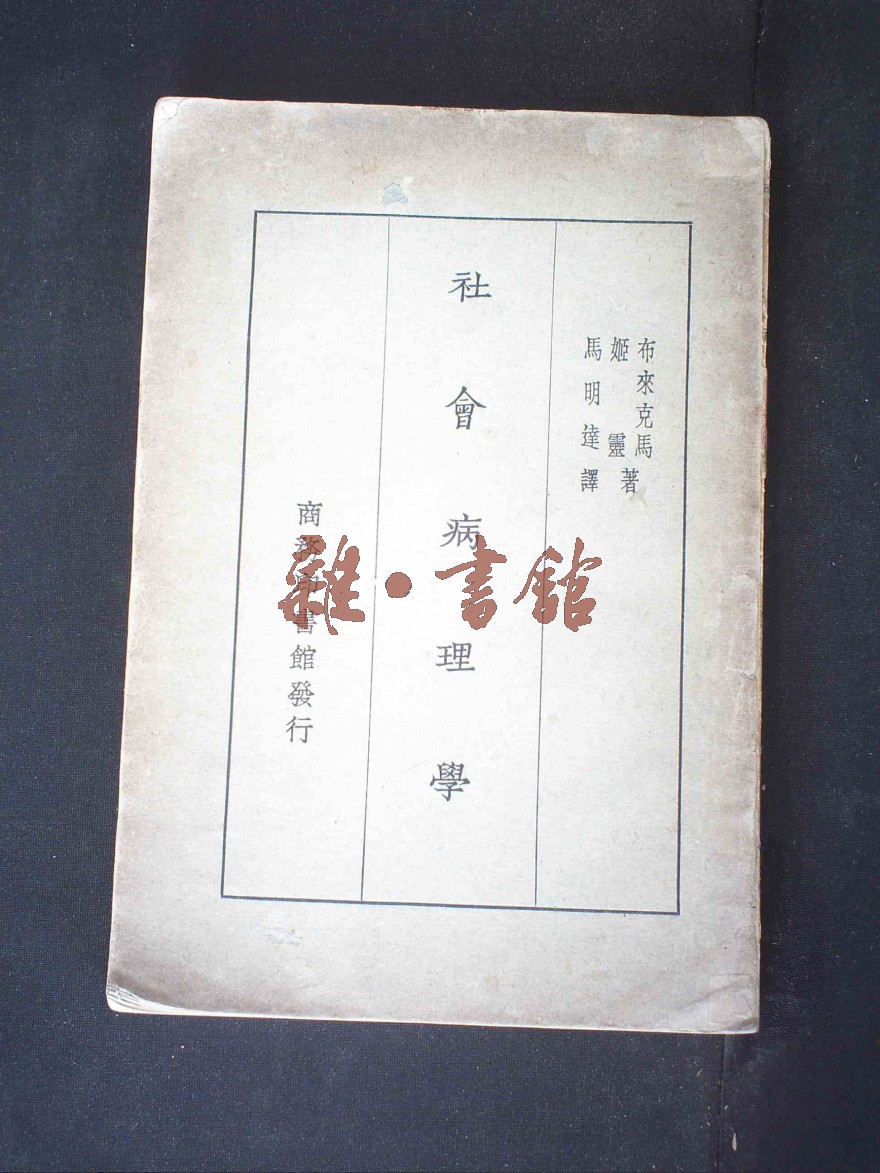 布來克馬
姬靈 著
馬明達譯
社會病理學
商務印書館發行
雜·書館